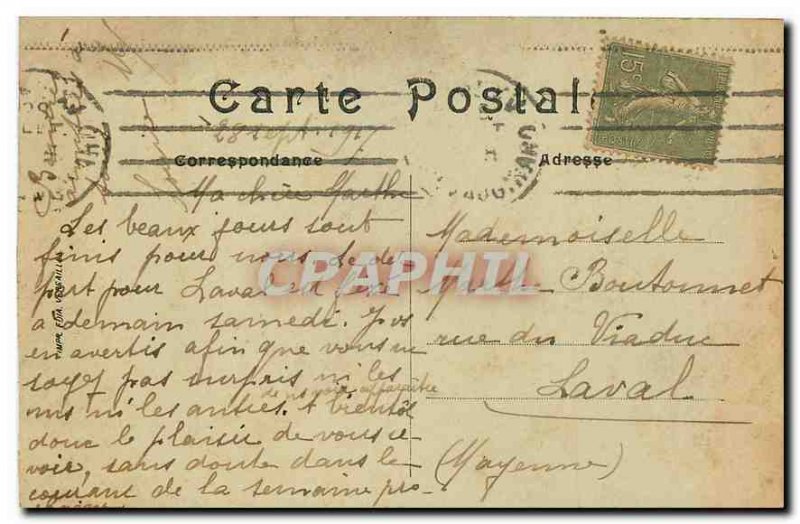 Carte Postale
28 sept. 1917
Correspondance
Adresse
Ma chère Marthe
Les beaux jours sont
finis pour nous. Le dé
part pour Laval est fixé
à demain samedi. Je vs
en avertis afin que vous ne
soyez pas surpris ni les
uns ni les autres
de ns voir apparaître
. A bientôt
donc le plaisir de vous re
voir, sans doute dans le
courant de la semaine pro-
Mademoiselle
Boutonnet
rue du Viaduc
Laval
(Mayenne)
IMPR. EDIA. VERSAILLES
CPAPHIL
5c